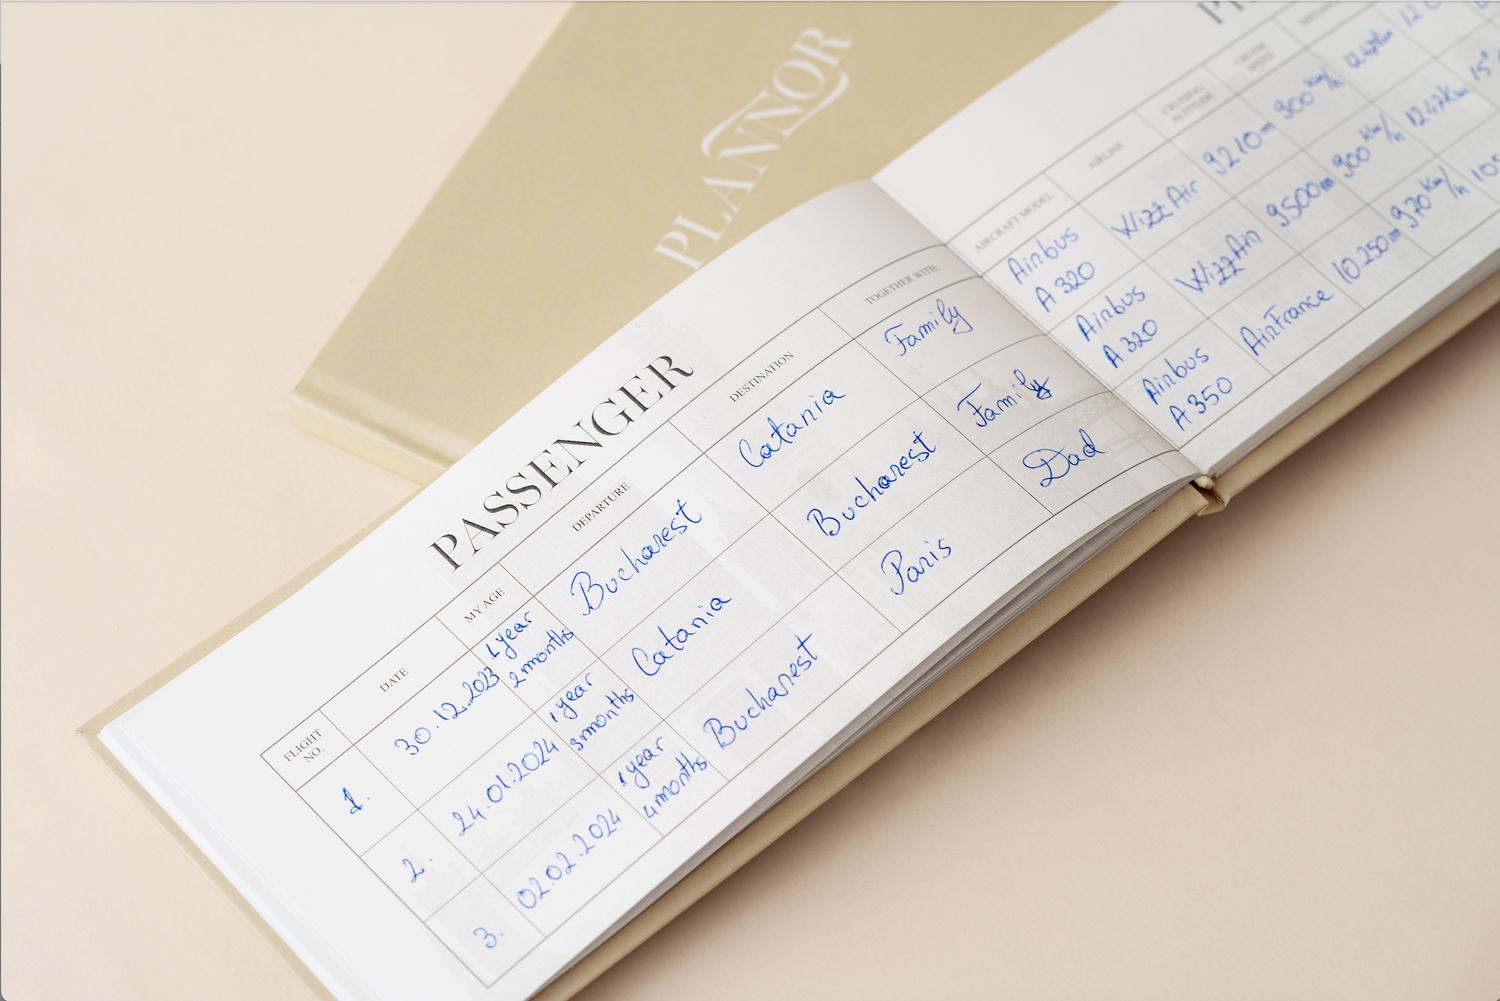 PLANNOR
PASSENGER
FLIGHT NO. DATE MY AGE DEPARTURE DESTINATION TOGETHER WITH
1. 30.12.2023 1 year 2 months Bucharest Catania Family
2. 24.01.2024 1 year 3 months Catania Bucharest Family
3. 02.02.2024 1 year 4 months Bucharest Paris Dad
AIRCRAFT MODEL AIRLINE CRUISING ALTITUDE CRUISE SPEED
Airbus A 320 Wizz Air 9210m 900 km/h 1247km
Airbus A 320 Wizz Air 9500m 900 km/h 1247km
Airbus A 350 AirFrance 10.250m 970 km/h